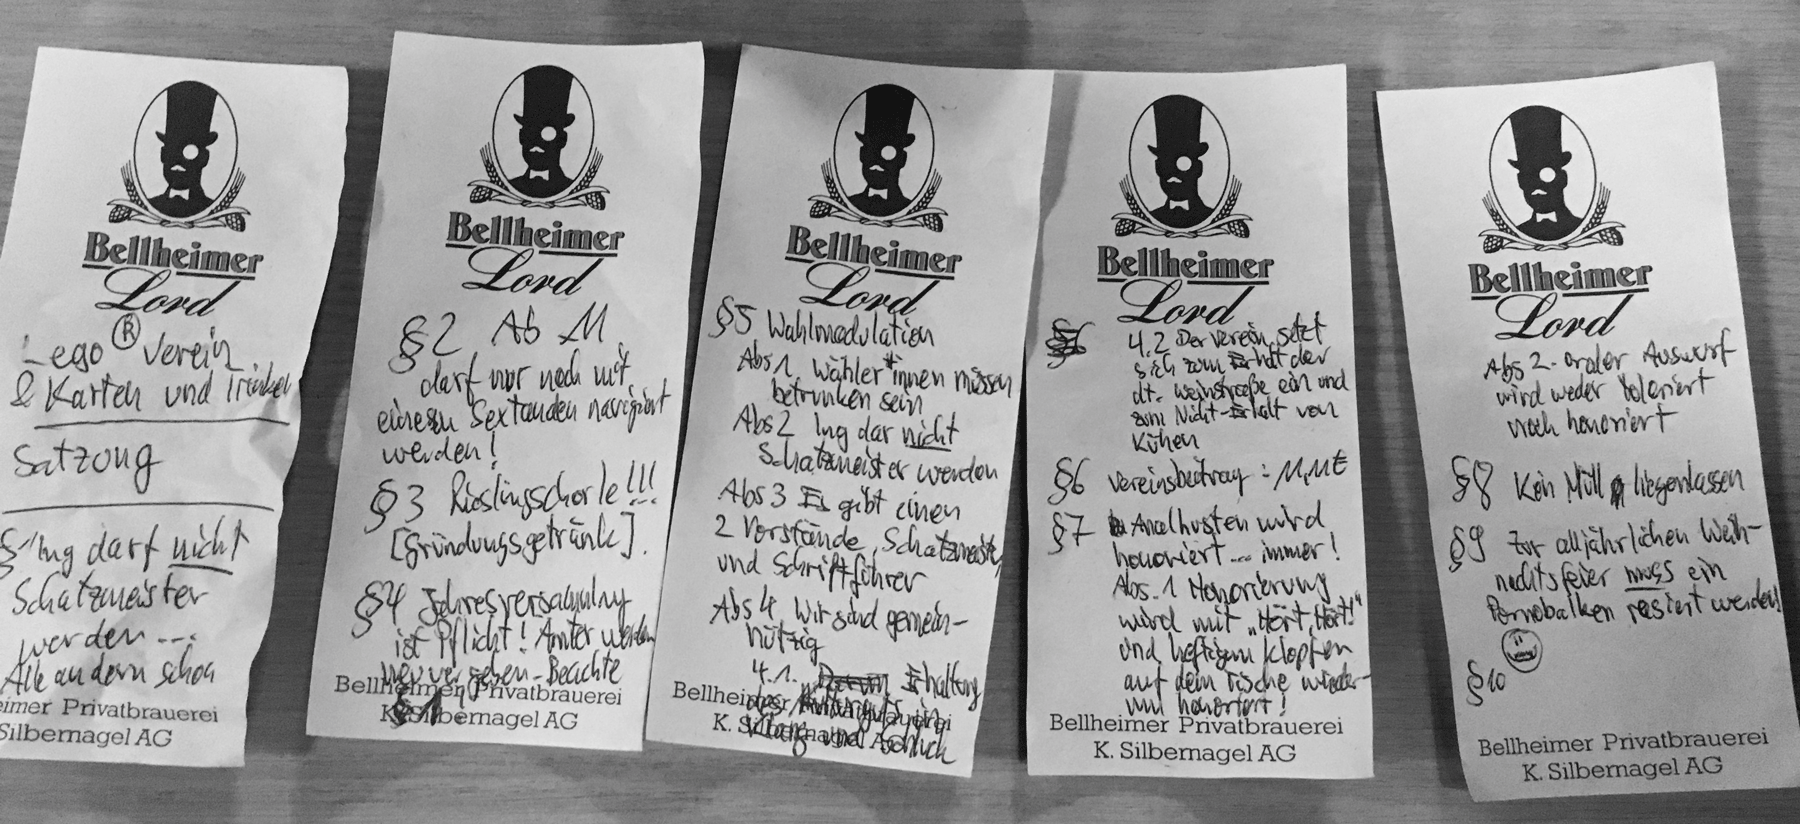 Bellheimer
Lord
Lego ® Verein
& Karten und Trinken
Satzung
§1 Ing darf nicht
Schatzmeister
werden ...
Alle andern schon
eimer Privatbrauerei
Silbernagel AG
Bellheimer
Lord
§2 Ab 11
darf nur noch mit
einem Sextanden navigiert
werden!
§3 Rieslingschorle!!!
[Gründungsgetränk].
§4 Jahresversammlung
ist Pflicht! Ämter werden
neu vergeben - Beachte
§1!
Bellheimer Privatbrauerei
K. Silbernagel AG
Bellheimer
Lord
§5 Wahlmodulation
Abs 1. Wähler*innen müssen
betrunken sein
Abs 2 Ing dar nicht
Schatzmeister werden
Abs 3 Es gibt einen
2 Vorstände, Schatzmeister
und Schriftführer
Abs 4. Wir sind gemein-
nützig
4.1. Erhaltung
des
und Schluck
Bellheimer Privatbrauerei
K. Silbernagel AG
Bellheimer
Lord
4.2 Der Verein setzt
sich zum Erhalt der
dt. Weinstraße ein und
zum Nicht-Erhalt von
Kühen
§6 Vereinsbeitrag: 11,11€
§7 Analhusten wird
honoriert ... immer!
Abs. 1 Honorierung
wird mit „Hört, Hört!"
und heftigem klopfen
auf dem Tische wieder-
um honoriert!
Bellheimer Privatbrauerei
K. Silbernagel AG
Bellheimer
Lord
Abs 2. oraler Auswurf
wird weder toleriert
noch honoriert
§8 Kein Müll liegenlassen
§9 Zur alljährlichen Weih-
nachtsfeier muss ein
Pornobalken rasiert werden!
§10
Bellheimer Privatbrauerei
K. Silbernagel AG